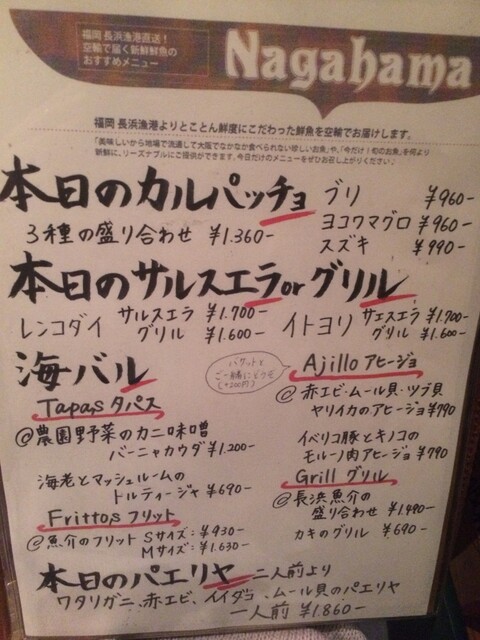 福岡 長浜漁港直送！
空輸で届く新鮮鮮魚の
おすすめメニュー
Nagahama
福岡 長浜漁港よりとことん鮮度にこだわった鮮魚を空輸でお届けします。
「美味しいから地場で流通して大阪でなかなか食べられない珍しいお魚」や、「今だけ！旬のお魚」を何より
新鮮に、リーズナブルにご提供ができます。今日だけのメニューをぜひお召し上がりください♪
本日のカルパッチョ
3種の盛り合わせ ¥1.360-
ブリ ¥960-
ヨコワマグロ ¥960-
スズキ ¥990-
本日のサルスエラorグリル
レンコダイ サルスエラ ¥1.700-
グリル ¥1.600-
イトヨリ サエスエラ ¥1.700-
グリル ¥1.600-
海バル
Tapas タパス
@農園野菜のカニ味噌
バーニャカウダ ¥1.200-
海老とマッシュルームの
トルティージャ ¥690-
Frittos フリット
@魚介のフリット Sサイズ：¥930-
Mサイズ：¥1.630-
バケットと
ご一緒にどうぞ
(+200円)
Ajillo アヒージョ
@赤エビ・ムール貝・ツブ貝
ヤリイカのアヒージョ ¥790
イベリコ豚とキノコの
モルーノ肉アヒージョ ¥790
Grill グリル
@長浜魚介の
盛り合わせ ¥1.490-
カキのグリル ¥690-
本日のパエリヤ 二人前より
ワタリガニ、赤エビ、イイダコ、ムール貝のパエリヤ
一人前 ¥1.860-